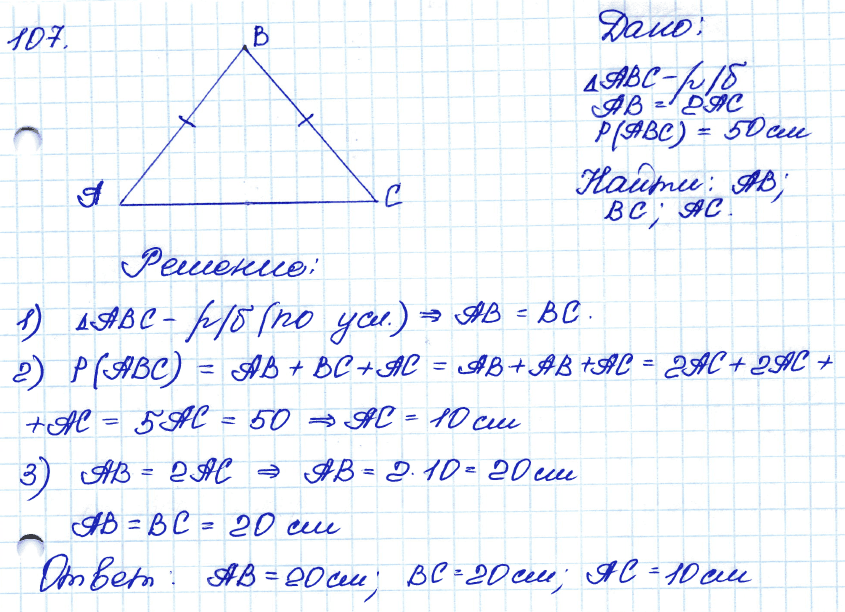 107.
B
A
C
Дано:
△ABC - р/б
AB = 2AC
P(ABC) = 50 см
Найти: AB;
BC; AC.
Решение:
1) △ABC - р/б (по усл.) ⇒ AB = BC.
2) P(ABC) = AB + BC + AC = AB + AB + AC = 2AC + 2AC +
+ AC = 5AC = 50 ⇒ AC = 10 см
3) AB = 2AC ⇒ AB = 2·10 = 20 см
AB = BC = 20 см
Ответ: AB = 20 см; BC = 20 см; AC = 10 см